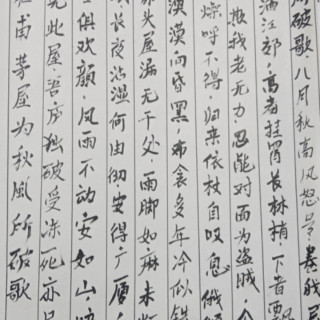 破歌八月秋高风怒号卷我
江郊,高者挂罥长林梢,下者飘
欺我老无力,忍能对面为盗贼,公
燥呼不得,归来依杖自叹息,俄
漠漠向昏黑,布衾多年冷似铁
头屋漏无干处,雨脚如麻未断
长夜沾湿何由彻,安得广厦
俱欢颜,风雨不动安如山,
见此屋吾庐独破受冻死亦足
甫茅屋为秋風所破歌